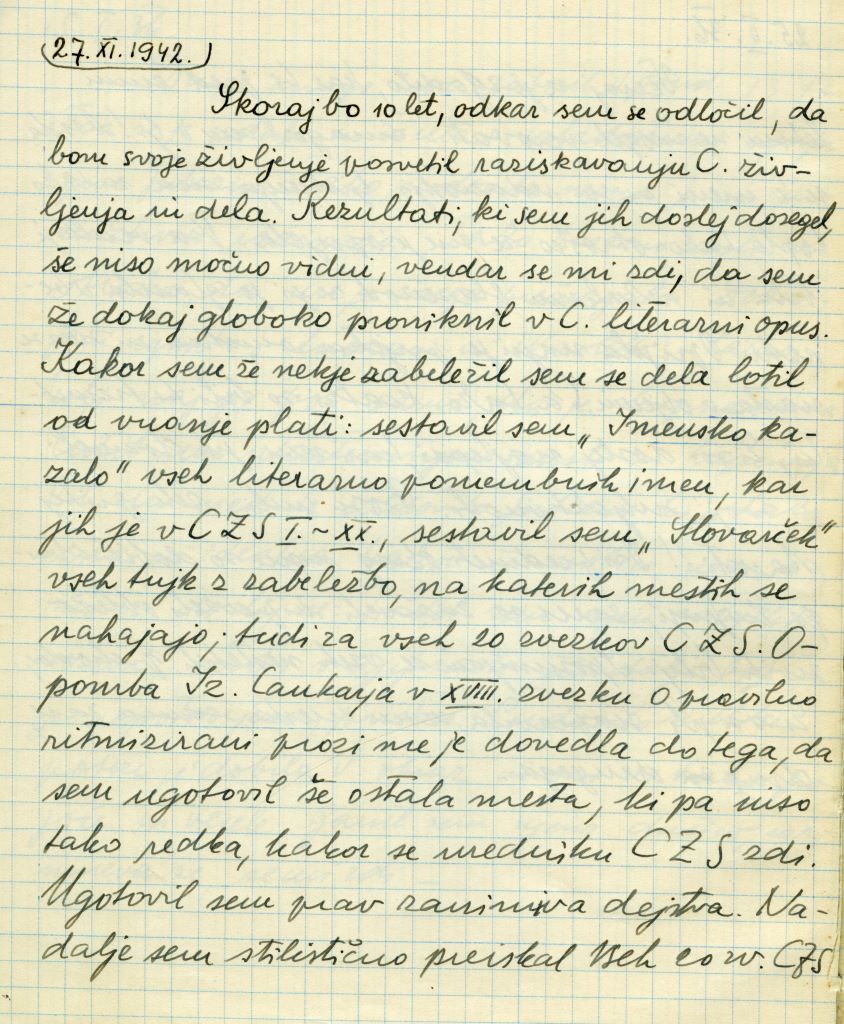 (27. XI. 1942.)
Skoraj bo 10 let, odkar sem se odločil, da
bom svoje življenje posvetil raziskavanju C. živ-
ljenja in dela. Rezultati, ki sem jih doslej dosegel,
še niso močno vidni, vendar se mi zdi, da sem
že dokaj globoko proniknil v C. literarni opus.
Kakor sem že nekje zabeležil sem se dela lotil
od vnanje plati: sestavil sem „Imensko ka-
zalo" vseh literarno pomembnih imen, kar
jih je v CZS I.-XX., sestavil sem „Slovarček"
vseh tujk z zabeležbo, na katerih mestih se
nahajajo; tudi za vseh 20 zvezkov CZS. O-
pomba Iz. Cankarja v XVIII. zvezku o pravilno
ritmizirani prozi me je dovedla do tega, da
sem ugotovil še ostala mesta, ki pa niso
tako redka, kakor se uredniku CZS zdi.
Ugotovil sem prav zanimiva dejstva. Na-
dalje sem stilistično preiskal vseh 20 zv. CZS